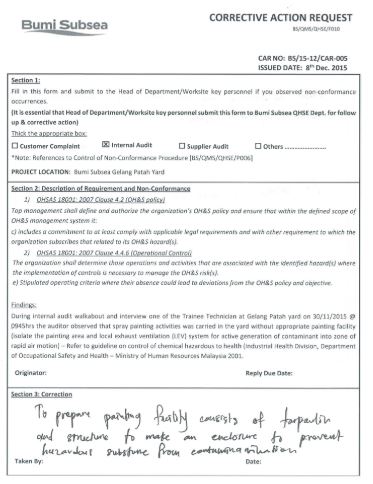 Bumi Subsea
CORRECTIVE ACTION REQUEST
BS/QMS/QHSE/F010
CAR NO: BS/15-12/CAR-005
ISSUED DATE: 8th Dec. 2015
Section 1:
Fill in this form and submit to the Head of Department/Worksite key personnel if you observed non-conformance
occurrences.
(It is essential that Head of Department/Worksite key personnel submit this form to Bumi Subsea QHSE Dept. for follow
up & corrective action)
Thick the appropriate box:
☐ Customer Complaint ☒ Internal Audit ☐ Supplier Audit ☐ Others ......................
*Note: References to Control of Non-Conformance Procedure [BS/QMS/QHSE/P006]
PROJECT LOCATION: Bumi Subsea Gelang Patah Yard
Section 2: Description of Requirement and Non-Conformance
1) OHSAS 18001: 2007 Clause 4.2 (OH&S policy)
Top management shall define and authorize the organization's OH&S policy and ensure that within the defined scope of
OH&S management system it:
c) includes a commitment to at least comply with applicable legal requirements and with other requirement to which the
organization subscribes that related to its OH&S hazard(s).
2) OHSAS 18001: 2007 Clause 4.4.6 (Operational Control)
The organization shall determine those operations and activities that are associated with the identified hazard(s) where
the implementation of controls is necessary to manage the OH&S risk(s).
e) Stipulated operating criteria where their absence could lead to deviations from the OH&S policy and objective.
Findings:
During internal audit walkabout and interview one of the Trainee Technician at Gelang Patah yard on 30/11/2015 @
0945hrs the auditor observed that spray painting activities was carried in the yard without appropriate painting facility
(isolate the painting area and local exhaust ventilation (LEV) system for active generation of contaminant into zone of
rapid air motion) – Refer to guideline on control of chemical hazardous to health (Industrial Health Division, Department
of Occupational Safety and Health – Ministry of Human Resources Malaysia 2001.
Originator: Reply Due Date:
Section 3: Correction
To prepare painting facility consists of tarpaulin
and structure to make an enclosure to prevent
hazardous substane from contamination
Taken By: Date: